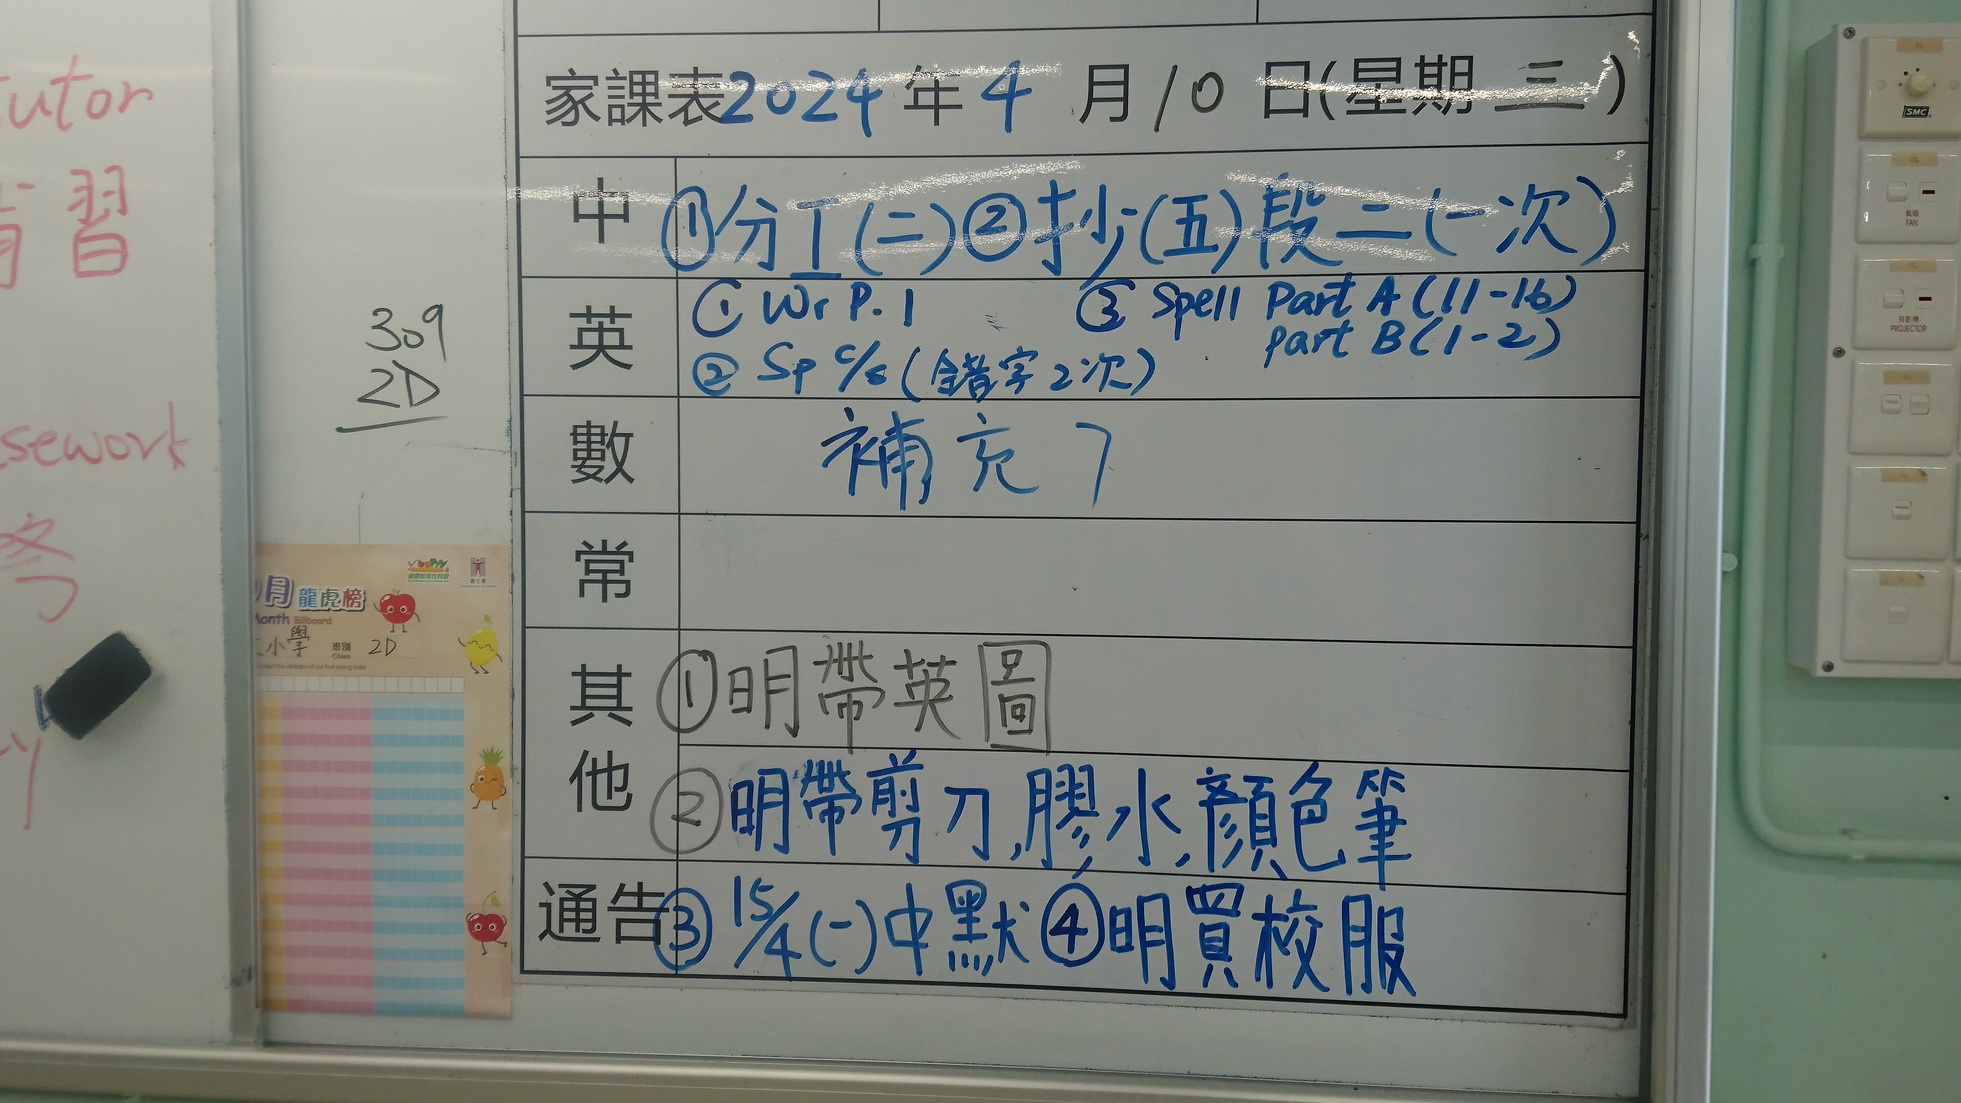 家課表2024年4月10日(星期三)
中 ①分工(二)②抄(五)段二(一次)
英 ① Wr P.1 ③ Spell Part A (11-16)
part B (1-2)
② Sp c/s (錯字2次)
數 補充7
常
其他 ①明帶英圖
②明帶剪刀,膠水,顏色筆
通告 ③ 15/4(一)中默④明買校服
tutor
習
309
2D
sework
月龍虎榜
Month Billboard
小學 班別 2D
Class
SMC
風扇
FAN
投影機
PROJECTOR